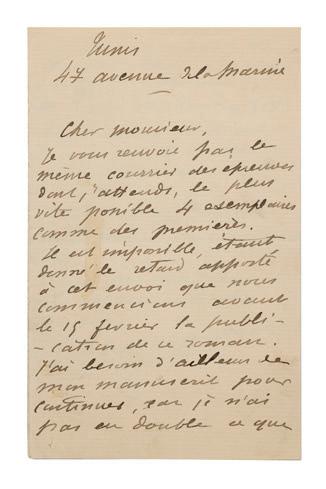 Tunis
47 avenue de la Marine
Cher monsieur,
Je vous renvoie par le
même courrier des épreuves
dont j'attends, le plus
vite possible 4 exemplaires
comme des premières.
Il est impossible, étant
donné le retard apporté
à cet envoi que nous
commencions avant
le 15 février la publi-
-cation de ce roman.
J'ai besoin d'ailleurs de
mon manuscrit pour
continuer, car je n'ai
pas en double ce que